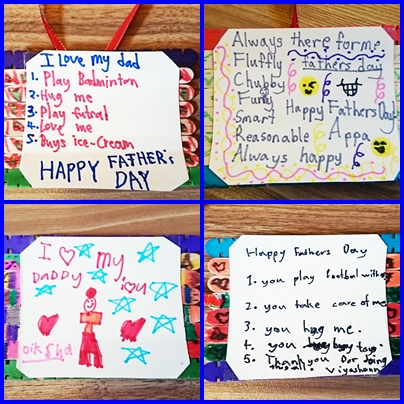 I Love my dad
1. Play Badminton
2. Hug me
3. Play futsal
4. Love me
5. Buys ice-Cream
HAPPY FATHER's
DAY
Always there for me
Fluffy
fathers day
Chubby
Funky
Happy Fathers Day
Smart
Appa
Reasonable
Always happy
I my
DADDY
i U
Happy Fathers Day
1. you play football with
2. you take care of me
3. you hug me.
4. you buy toy.
5. Thank you For doing
this all.